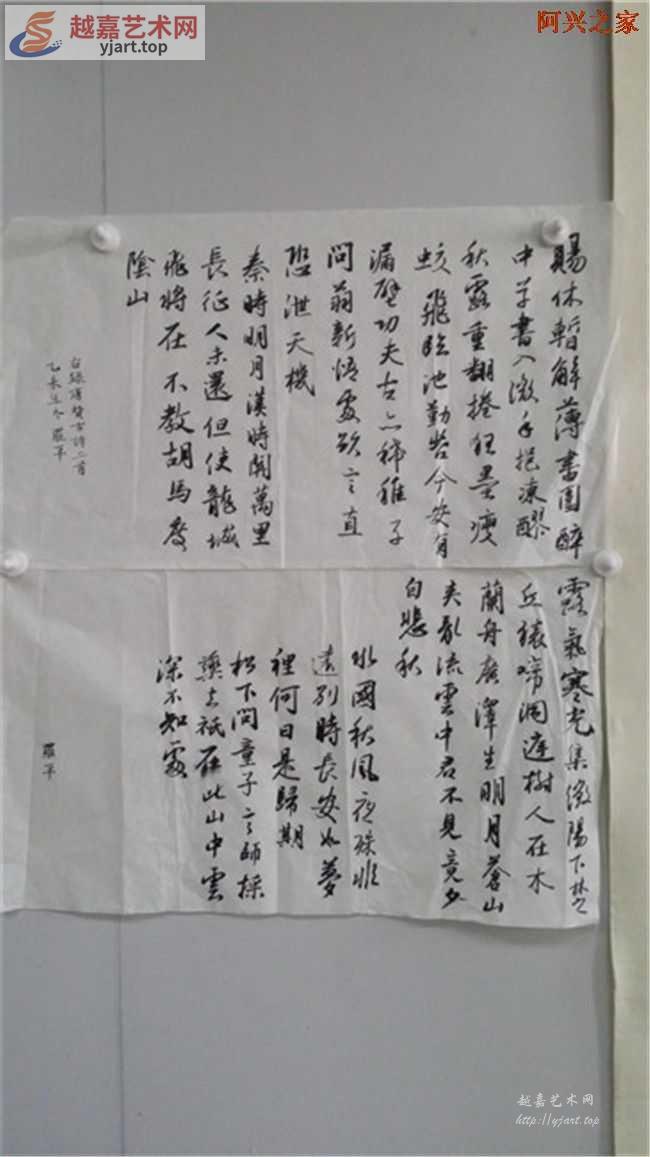 越嘉艺术网
yjart.top
阿兴之家
賜休暫解薄書圍醉
中草書入微手把凍醪
秋露重翻捲狂墨瘦
蛟飛臨池勤苦今安有
漏壁功夫古亦稀稚子
問翁新悟處欲言直
恐泄天機
秦時明月漢時關萬里
長征人未還但使龍城
飛將在不教胡馬度
陰山
古詩二首
乙未年冬羅軍
露氣寒光集微陽下楚
丘猿啼洞庭樹人在木
蘭舟廣澤生明月蒼山
夾亂流雲中君不見竟夕
自悲秋
水國秋風夜殊非
遠別時長安如夢
裡何日是歸期
松下問童子言師採
藥去祇在此山中雲
深不知處
羅軍
越嘉艺术网
http://yjart.top